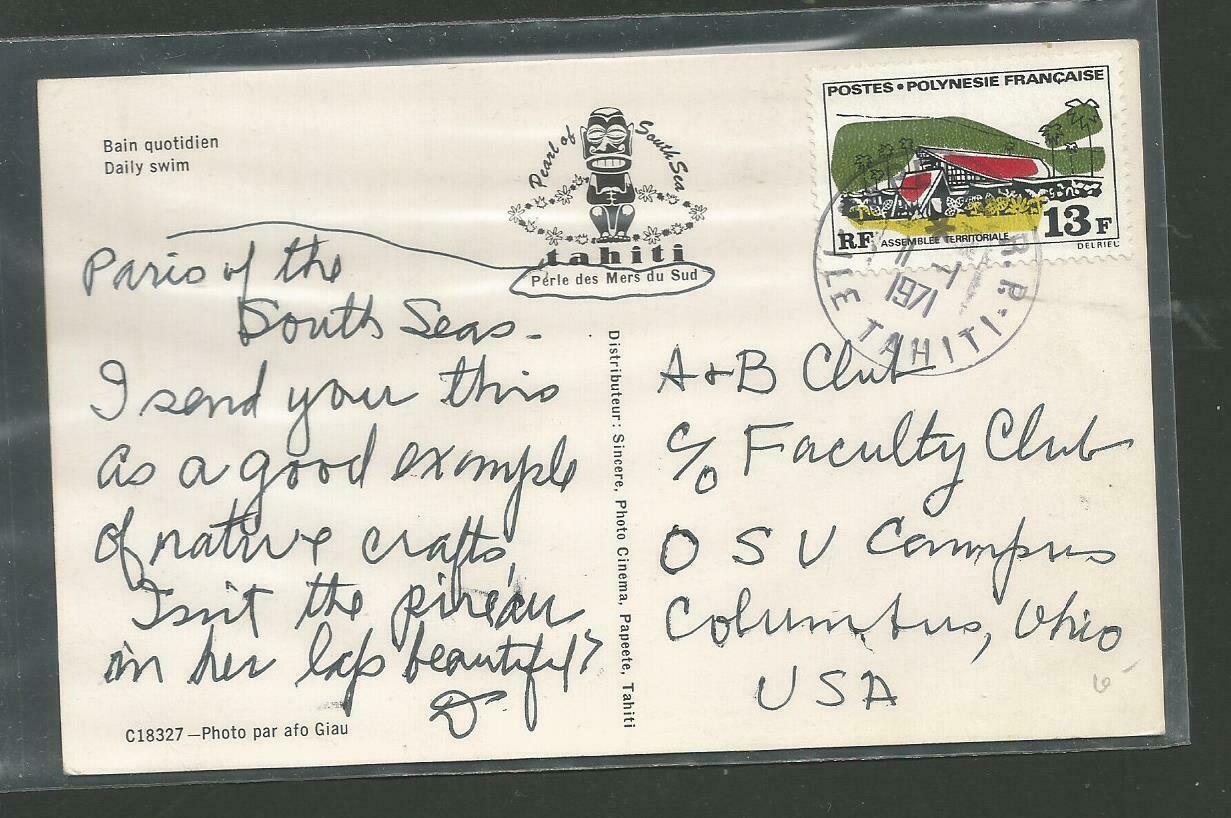 Bain quotidien
Daily swim
Pearl of South Sea
tahiti
Perle des Mers du Sud
POSTES • POLYNESIE FRANÇAISE
RF ASSEMBLEE TERRITORIALE 13F
DELRIEU
R.P.
11 7
1971
ILE TAHITI
Paris of the
South Seas –
I send you this
as a good example
of native crafts,
Isn't the
in her lap beautiful?
D
C18327 – Photo par afo Giau
Distributeur: Sincere, Photo Cinema, Papeete, Tahiti
A & B Club
c/o Faculty Club
O S U Campus
Columbus, Ohio
USA